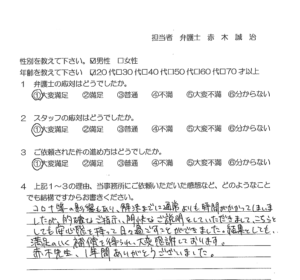 担当者 弁護士 赤木誠治
性別を教えて下さい。☑男性 □女性
年齢を教えて下さい ☑20代□30代□40代□50代□60代□70才以上
1 弁護士の応対はどうでしたか。
①大変満足 ②満足 ③普通 ④不満 ⑤大変不満 ⑥分からない
2 スタッフの応対はどうでしたか。
①大変満足 ②満足 ③普通 ④不満 ⑤大変不満 ⑥分からない
3 ご依頼された件の進め方はどうでしたか。
①大変満足 ②満足 ③普通 ④不満 ⑤大変不満 ⑥分からない
4 上記1~3の理由、当事務所にご依頼いただいた感想など、どのようなこと
でも結構ですからお書きください。
コロナ等の影響もあり、解決までに通常よりも時間がかかってしまいま
したが、的確なご指示、ご説明をしていただきまして、こちらと
しても安心感を持って日々過ごすことができました。結果としても
満足のいく補償を得られ、大変感謝しております。
赤木先生、1年間ありがとうございました。